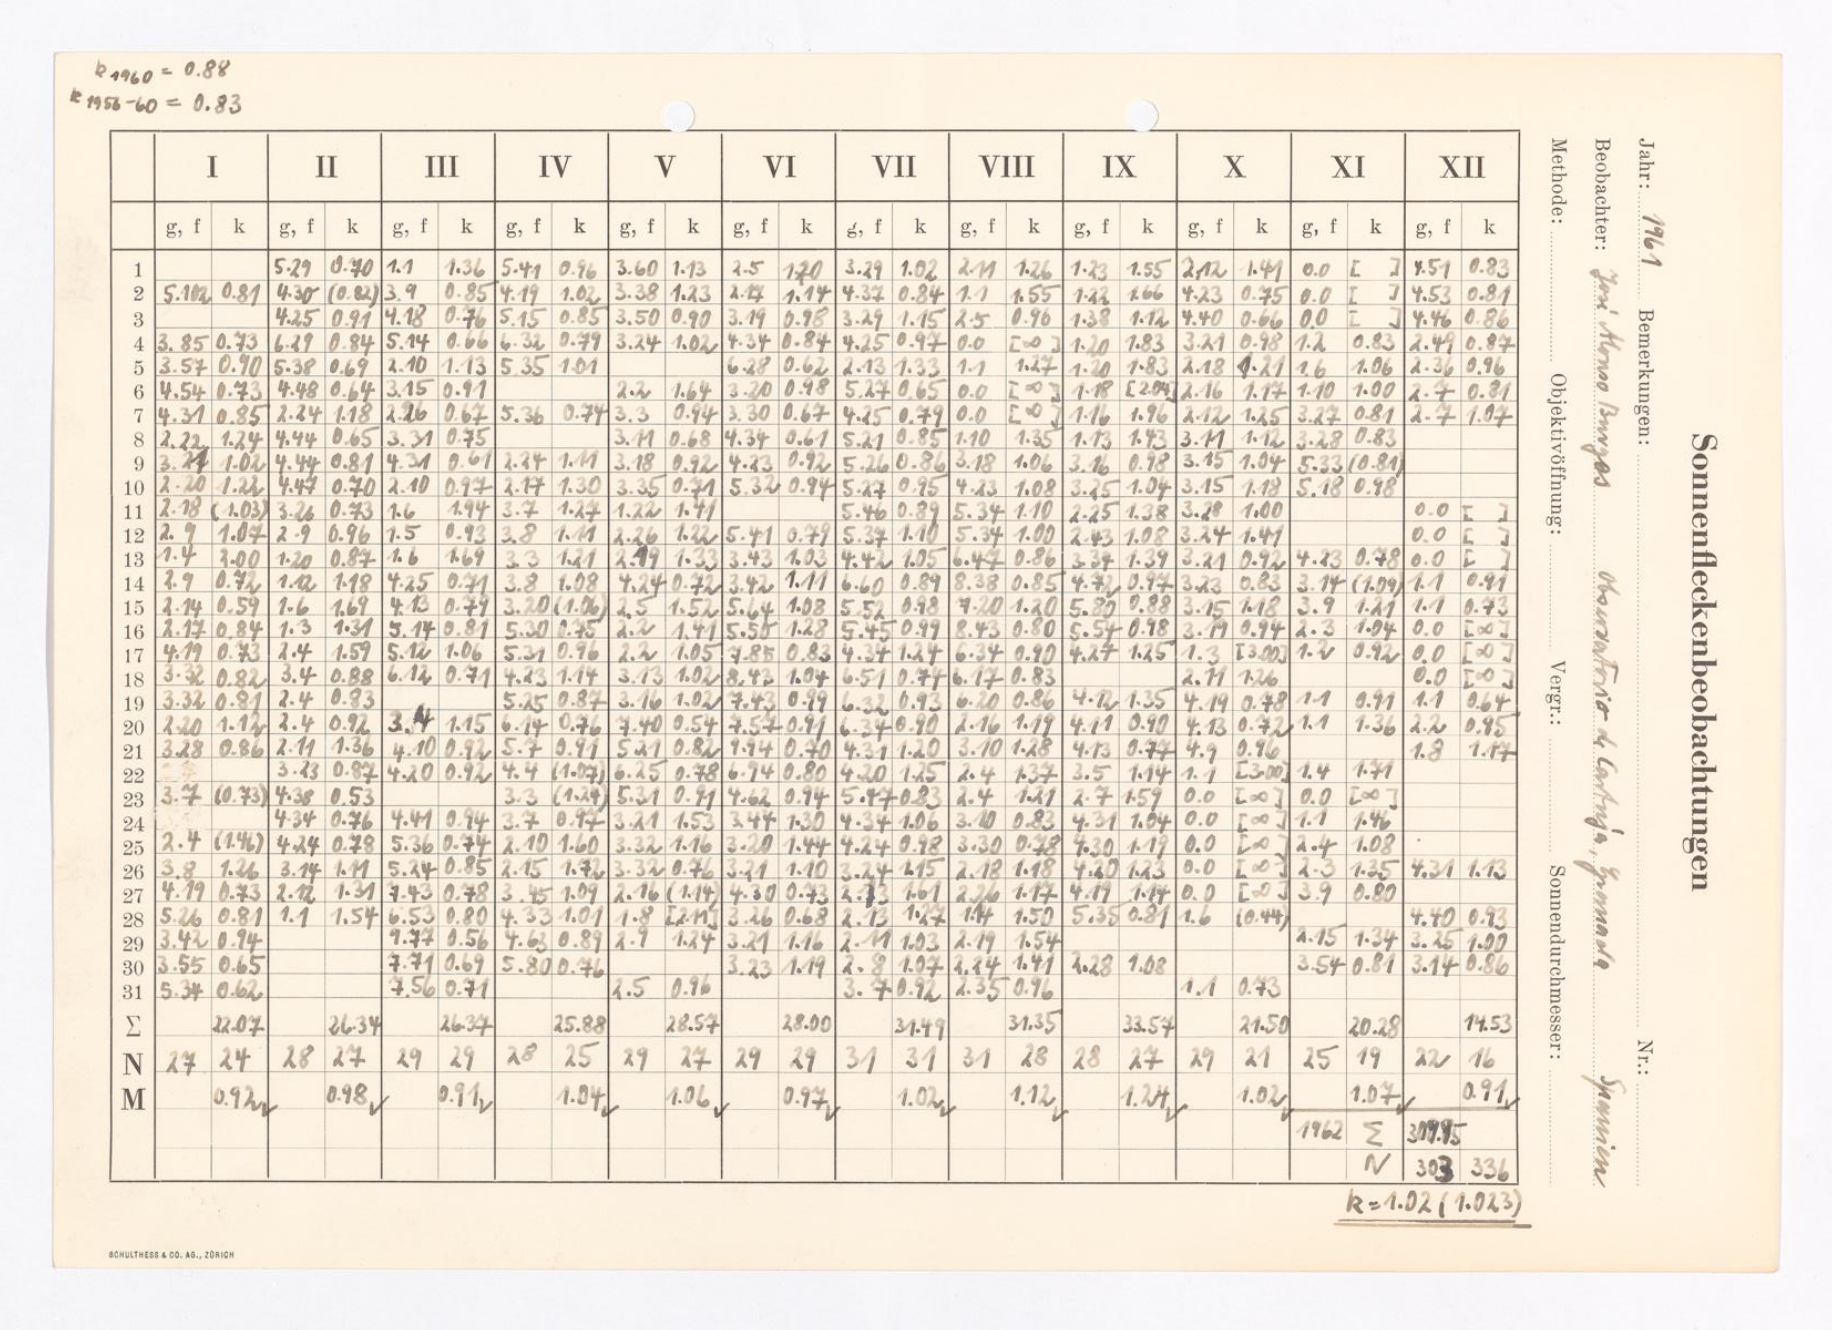 k 1960 = 0.88
k 1956-60 = 0.83
Sonnenfleckenbeobachtungen
Jahr: 1961 Bemerkungen: Nr.:
Beobachter: José Alonso Burgos Observatorio de Cartuja, Granada Spanien
Methode: Objektivöffnung: Vergr.: Sonnendurchmesser:
I II III IV V VI VII VIII IX X XI XII
g, f k g, f k g, f k g, f k g, f k g, f k g, f k g, f k g, f k g, f k g, f k g, f k
1 5.29 0.70 1.1 1.36 5.41 0.96 3.60 1.13 2.5 1.20 3.29 1.02 2.11 1.26 1.23 1.55 2.12 1.41 0.0 [ ] 4.51 0.83
2 5.102 0.81 4.30 (0.82) 3.9 0.85 4.19 1.02 3.38 1.23 2.17 1.14 4.37 0.84 1.1 1.55 1.22 1.66 4.23 0.75 0.0 [ ] 4.53 0.81
3 4.25 0.91 4.18 0.76 5.15 0.85 3.50 0.90 3.19 0.98 3.29 1.15 2.5 0.96 1.38 1.12 4.40 0.66 0.0 [ ] 4.46 0.86
4 3.85 0.73 6.29 0.84 5.14 0.66 6.32 0.79 3.24 1.02 4.34 0.84 4.25 0.97 0.0 [∞] 1.20 1.83 3.21 0.98 1.2 0.83 2.49 0.87
5 3.57 0.90 5.38 0.69 2.10 1.13 5.35 1.01 6.28 0.62 2.13 1.33 1.1 1.27 1.20 1.83 2.18 1.21 1.6 1.06 2.36 0.96
6 4.54 0.73 4.48 0.64 3.15 0.91 2.2 1.64 3.20 0.98 5.27 0.65 0.0 [∞] 1.18 [2.04] 2.16 1.17 1.10 1.00 2.7 0.81
7 4.31 0.85 2.24 1.18 2.26 0.67 5.36 0.74 3.3 0.94 3.30 0.67 4.25 0.79 0.0 [∞] 1.16 1.96 2.12 1.25 3.27 0.81 2.7 1.07
8 2.22 1.24 4.44 0.65 3.31 0.75 3.11 0.68 4.34 0.61 5.21 0.85 1.10 1.35 1.13 1.43 3.11 1.12 3.28 0.83
9 3.21 1.02 4.44 0.81 4.31 0.61 2.24 1.11 3.18 0.92 4.23 0.92 5.26 0.86 3.18 1.06 3.16 0.98 3.15 1.04 5.33 (0.81)
10 2.20 1.22 4.47 0.70 2.10 0.97 2.17 1.30 3.35 0.71 5.32 0.94 5.27 0.95 4.23 1.08 3.25 1.04 3.15 1.18 5.18 0.98
11 2.18 (1.03) 3.26 0.73 1.6 1.94 3.7 1.27 1.22 1.41 5.46 0.89 5.34 1.10 2.25 1.38 3.28 1.00 0.0 [ ]
12 2.9 1.07 2.9 0.96 1.5 0.93 3.8 1.11 2.26 1.22 5.41 0.79 5.37 1.10 5.34 1.00 2.43 1.08 3.24 1.41 0.0 [ ]
13 1.4 2.00 1.20 0.87 1.6 1.69 3.3 1.21 2.19 1.33 3.43 1.03 4.42 1.05 6.47 0.86 3.34 1.39 3.21 0.92 4.23 0.78 0.0 [ ]
14 2.9 0.72 1.12 1.18 4.25 0.71 3.8 1.08 4.24 0.72 3.42 1.11 6.60 0.89 8.38 0.85 4.72 0.97 3.23 0.83 3.14 (1.09) 1.1 0.91
15 2.14 0.59 1.6 1.69 4.13 0.79 3.20 (1.06) 2.5 1.52 5.64 1.08 5.52 0.98 7.20 1.20 5.80 0.88 3.15 1.18 3.9 1.21 1.1 0.73
16 2.17 0.84 1.3 1.31 5.14 0.81 5.30 0.75 2.2 1.41 5.50 1.28 5.45 0.99 8.43 0.80 5.54 0.98 3.19 0.94 2.3 1.04 0.0 [∞]
17 4.19 0.73 2.4 1.59 5.12 1.06 5.31 0.96 2.2 1.05 7.85 0.83 4.34 1.24 6.34 0.90 4.27 1.25 1.3 [3.00] 1.2 0.92 0.0 [∞]
18 3.32 0.82 3.4 0.88 6.12 0.71 4.23 1.14 3.13 1.02 8.42 1.04 6.51 0.74 6.17 0.83 2.11 1.26 0.0 [∞]
19 3.32 0.81 2.4 0.83 5.25 0.87 3.16 1.02 7.43 0.99 6.32 0.93 6.20 0.86 4.12 1.35 4.19 0.78 1.1 0.91 1.1 0.64
20 2.20 1.12 2.4 0.92 3.4 1.15 6.14 0.76 7.40 0.54 7.57 0.91 6.34 0.90 2.16 1.19 4.11 0.90 4.13 0.72 1.1 1.36 2.2 0.95
21 3.28 0.86 2.11 1.36 4.10 0.92 5.7 0.91 5.21 0.82 7.94 0.70 4.31 1.20 3.10 1.28 4.13 0.77 4.9 0.96 1.8 1.17
22 3.23 0.87 4.20 0.92 4.4 (1.07) 6.25 0.78 6.94 0.80 4.20 1.25 2.4 1.37 3.5 1.14 1.1 [3.00] 1.4 1.71
23 3.7 (0.73) 4.38 0.53 3.3 (1.24) 5.31 0.91 4.62 0.94 5.47 0.83 2.4 1.21 2.7 1.59 0.0 [∞] 0.0 [∞]
24 4.34 0.76 4.41 0.94 3.7 0.97 3.21 1.53 3.44 1.30 4.34 1.06 3.10 0.83 4.31 1.04 0.0 [∞] 1.1 1.46
25 2.4 (1.46) 4.24 0.78 5.36 0.74 2.10 1.60 3.32 1.16 3.20 1.44 4.24 0.98 3.30 0.78 4.30 1.19 0.0 [∞] 2.4 1.08
26 3.8 1.26 3.14 1.11 5.24 0.85 2.15 1.72 3.32 0.76 3.21 1.10 3.24 1.15 2.18 1.18 4.20 1.23 0.0 [∞] 2.3 1.35 4.31 1.13
27 4.19 0.73 2.12 1.31 7.43 0.78 3.45 1.09 2.16 (1.14) 4.30 0.73 2.13 1.61 2.26 1.17 4.19 1.14 0.0 [∞] 3.9 0.80
28 5.26 0.81 1.1 1.54 6.53 0.80 4.33 1.01 1.8 [2.11] 3.26 0.68 2.13 1.27 1.14 1.50 5.35 0.81 1.6 (0.44) 4.40 0.93
29 3.42 0.94 9.77 0.56 4.63 0.89 2.9 1.24 3.21 1.16 2.11 1.03 2.19 1.54 2.15 1.34 3.25 1.00
30 3.55 0.65 7.71 0.69 5.80 0.76 3.23 1.19 2.8 1.07 2.24 1.41 2.28 1.08 3.54 0.81 3.14 0.86
31 5.34 0.62 7.56 0.71 2.5 0.96 3.7 0.92 2.35 0.96 1.1 0.73
Σ 22.07 26.34 26.37 25.88 28.57 28.00 31.49 31.35 33.57 21.50 20.28 14.53
N 27 24 28 27 29 29 28 25 29 27 29 29 31 31 31 28 28 27 29 21 25 19 22 16
M 0.92 0.98 0.91 1.04 1.06 0.97 1.02 1.12 1.24 1.02 1.07 0.91
1962 Σ
N 303 336
k = 1.02 (1.023)
SCHULTHESS & CO. AG., ZÜRICH